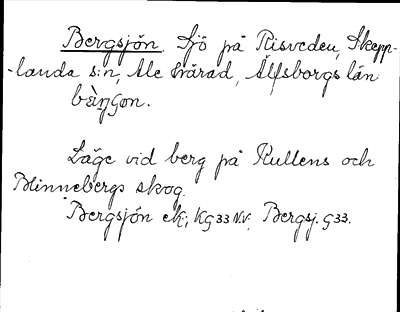 Bergsjön Sjö på Risveden, Skepp-
-landa s:n, Ale härad, Älfsborgs län
bæ̀ŋʃon.
Läge vid berg på Kullens och
Blinnebergs skog.
Bergsjön ek; KG33 NV; Bergsj. G33.